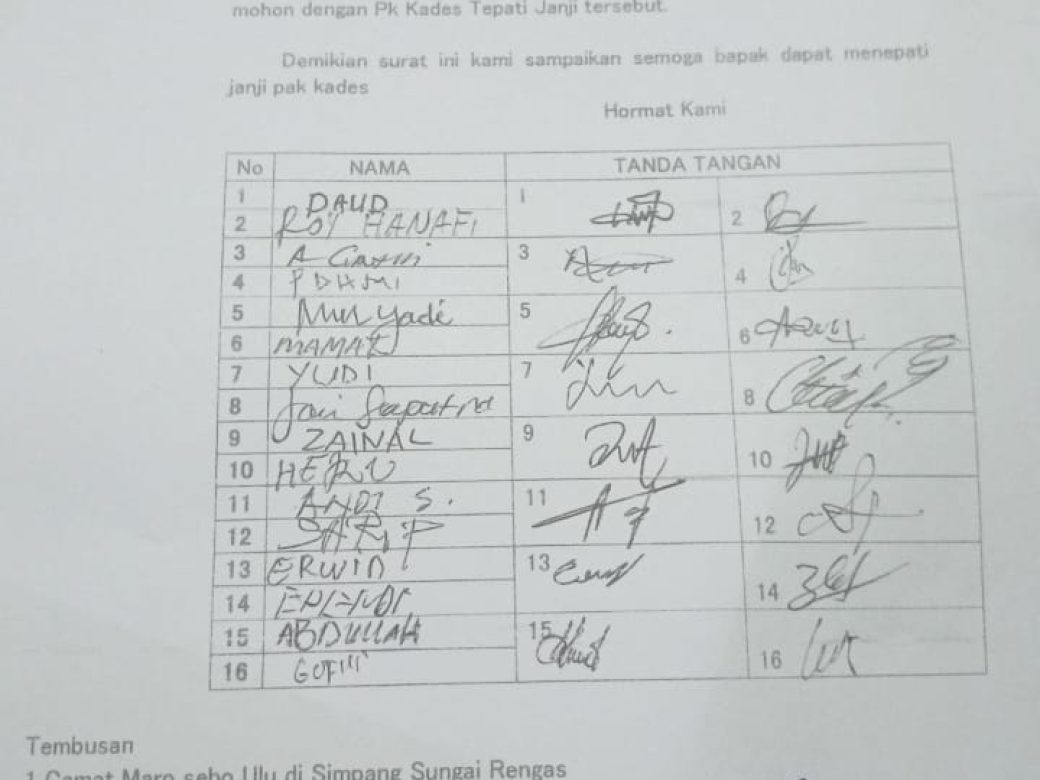 mohon dengan Pk Kades Tepati Janji tersebut.
Demikian surat ini kami sampaikan semoga bapak dapat menepati
janji pak kades
Hormat Kami
No NAMA TANDA TANGAN
1 DAUD 1
2 ROY HANAFI 2
3 A 3
4 4
5 Mulyadi 5
6 MAMAT 6
7 YUDI 7
8 Saputra 8
9 ZAINAL 9
10 HERU 10
11 ANDI S. 11
12 SARIP 12
13 ERWIN 13
14 14
15 ABDULLAH 15
16 16
Tembusan
1 Camat Maro sebo Ulu di Simpang Sungai Rengas